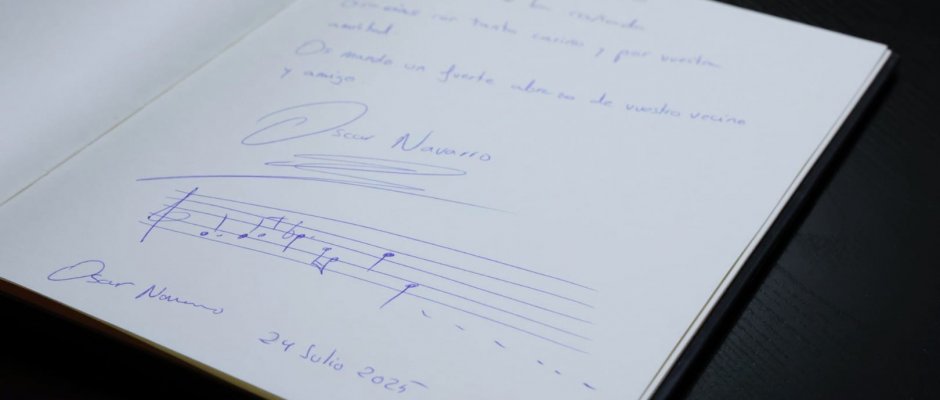 Gracias por tanto cariño y por vuestra
amistad.
Os mando un fuerte abrazo de vuestro vecino
y amigo
Oscar Navarro
Oscar Navarro
24 Julio 2025